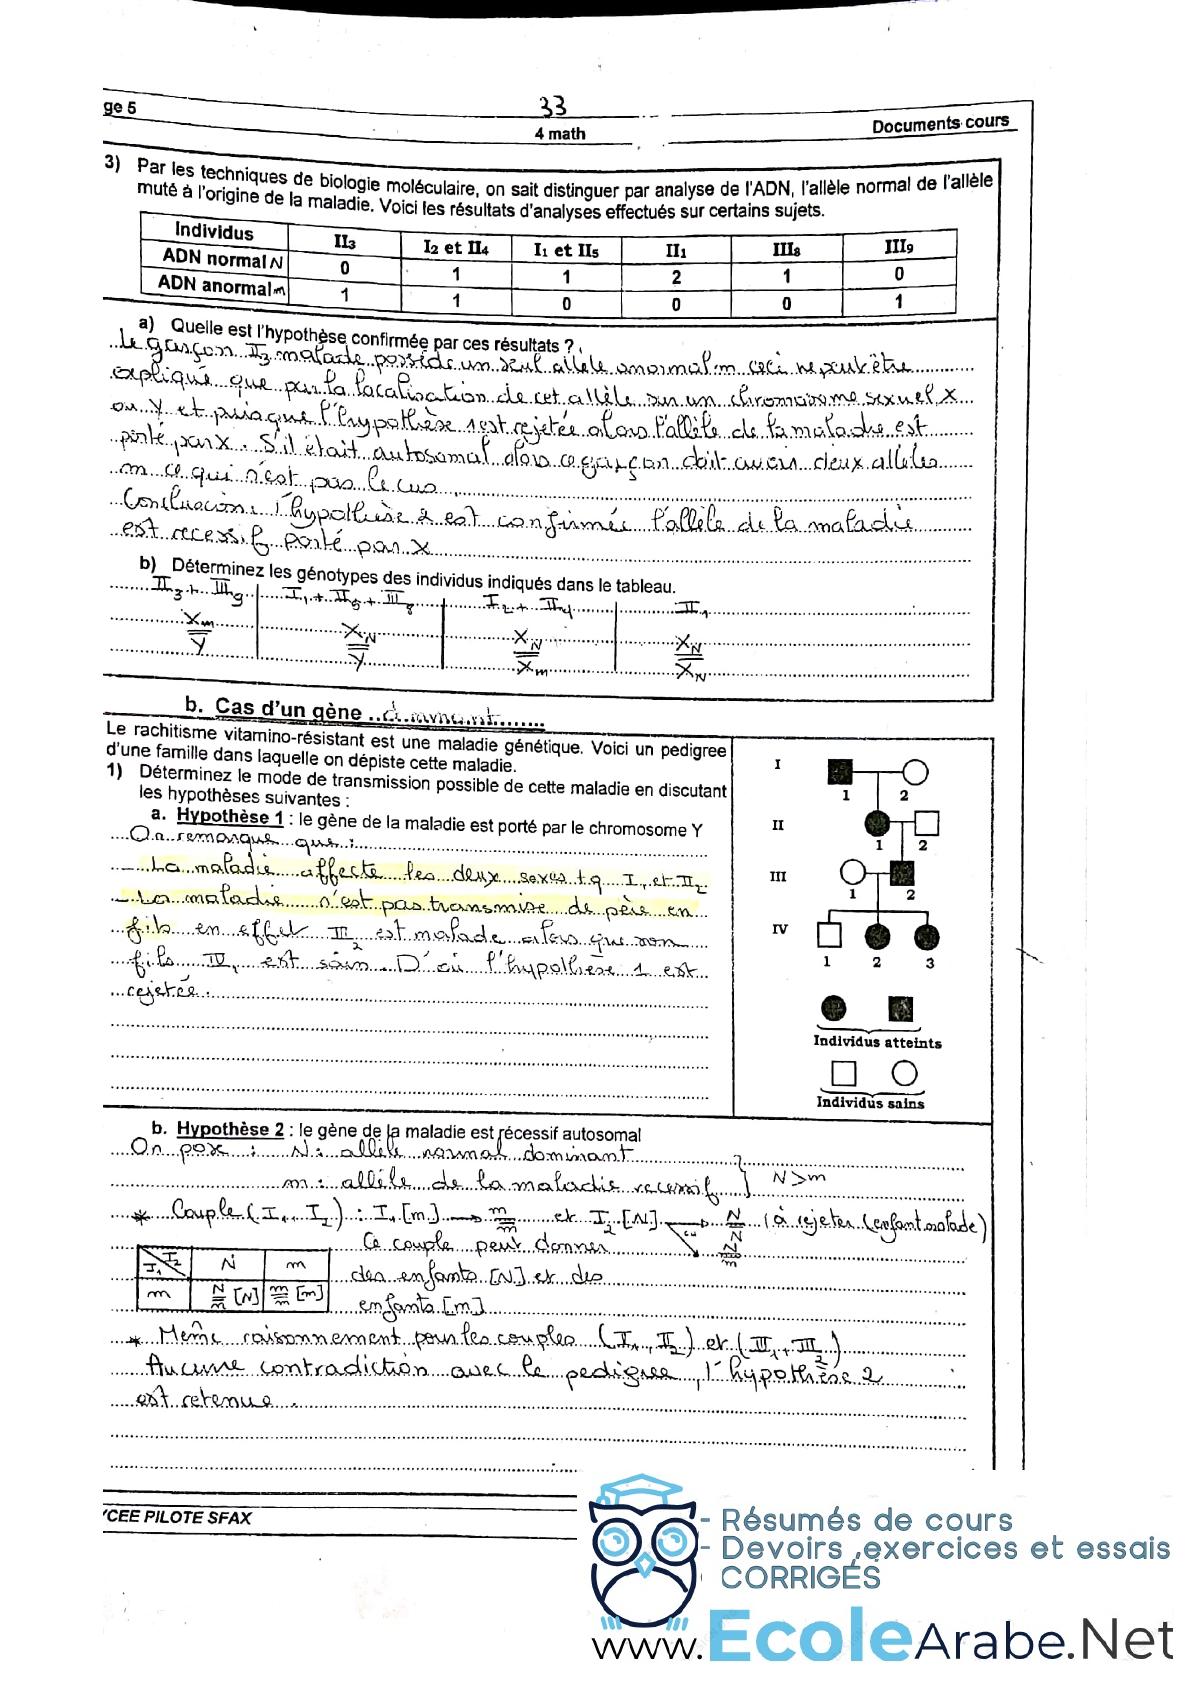 ge 5
33
4 math
Documents cours
3) Par les techniques de biologie moléculaire, on sait distinguer par analyse de l'ADN, l'allèle normal de l'allèle
muté à l'origine de la maladie. Voici les résultats d'analyses effectués sur certains sujets.
Individus II3 I2 et II4 I1 et II5 II1 III8 III9
ADN normal N 0 1 1 2 1 0
ADN anormal m 1 1 0 0 0 1
a) Quelle est l'hypothèse confirmée par ces résultats ?
Le garçon II3 malade possède un seul allèle anormal m ceci ne peut être
expliqué que par la localisation de cet allèle sur un chromosome sexuel X
ou Y et puisque l'hypothèse 1 est rejetée alors l'allèle de la maladie est
porté par X. S'il était autosomal alors ce garçon doit avoir deux allèles
m ce qui n'est pas le cas.
Conclusion : l'hypothèse 2 est confirmée l'allèle de la maladie
est recessif porté par X
b) Déterminez les génotypes des individus indiqués dans le tableau.
II3 + III9 I1 + II5 + III8 I2 + II4 II1
Xm XN XN XN
Y Y Xm XN
b. Cas d'un gène dominant
Le rachitisme vitamino-résistant est une maladie génétique. Voici un pedigree
d'une famille dans laquelle on dépiste cette maladie.
1) Déterminez le mode de transmission possible de cette maladie en discutant
les hypothèses suivantes :
a. Hypothèse 1 : le gène de la maladie est porté par le chromosome Y
On remarque que :
- La maladie affecte les deux sexes tq I1 et II2
- La maladie n'est pas transmise de père en
fils en effet III2 est malade alors que son
fils IV1 est sain. D'où l'hypothèse 1 est
rejetée.
I
1 2
II
1 2
III
1 2
IV
1 2 3
Individus atteints
Individus sains
b. Hypothèse 2 : le gène de la maladie est récessif autosomal
On pose : N : allèle normal dominant
m : allèle de la maladie recessif } N > m
* Couple (I1, I2) : I1 [m] → m/m et I2 [N] → N/N (à rejeter (enfant malade)
ou N/m
Ce couple peut donner
I1 I2 N m
des enfants [N] et des
m N/m [N] m/m [m]
enfants [m]
* Même raisonnement pour les couples (II1, II2) et (III1, III2)
Aucune contradiction avec le pedigree, l'hypothèse 2
est retenue.
YCEE PILOTE SFAX
- Résumés de cours
- Devoirs, exercices et essais
CORRIGÉS
www.EcoleArabe.Net